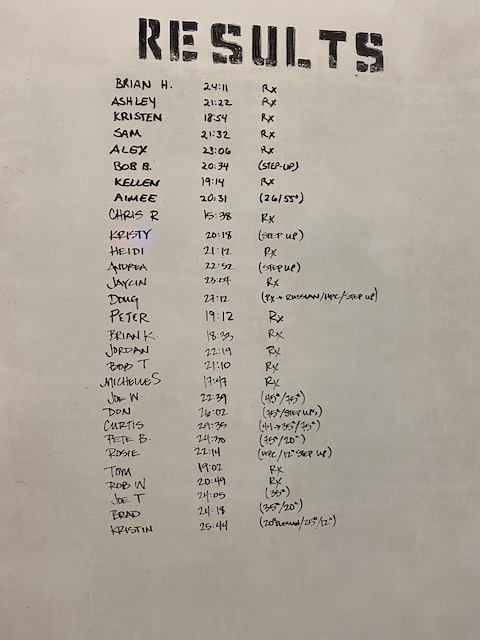 RESULTS
BRIAN H. 24:11 Rx
ASHLEY 21:22 Rx
KRISTEN 18:54 Rx
SAM 21:32 Rx
ALEX 23:06 Rx
BOB B. 20:34 (STEP-UP)
KELLEN 19:14 Rx
AIMEE 20:31 (26/55#)
CHRIS R 15:38 Rx
KRISTY 20:18 (STEP UP)
HEIDI 21:12 Rx
ANDREA 22:52 (STEP UP)
JAYLIN 23:04 Rx
DOUG 27:12 (Rx→RUSSIAN/HPC/STEP UP)
PETER 19:12 Rx
BRIAN K. 18:33 Rx
JORDAN 22:19 Rx
BOB T 21:10 Rx
MICHELLE S 17:47 Rx
JOE W. 22:39 (45#/75#)
DON 26:02 (75#/STEP UPS)
CURTIS 29:35 (44→35#/75#)
PETE B. 24:30 (75#/20")
ROSIE 22:14 (HPC/12" STEP UP)
TOM 19:02 Rx
ROB W 20:49 Rx
JOE T 24:05 (35#)
BRAD 24:18 (35#/20")
KRISTIN 25:44